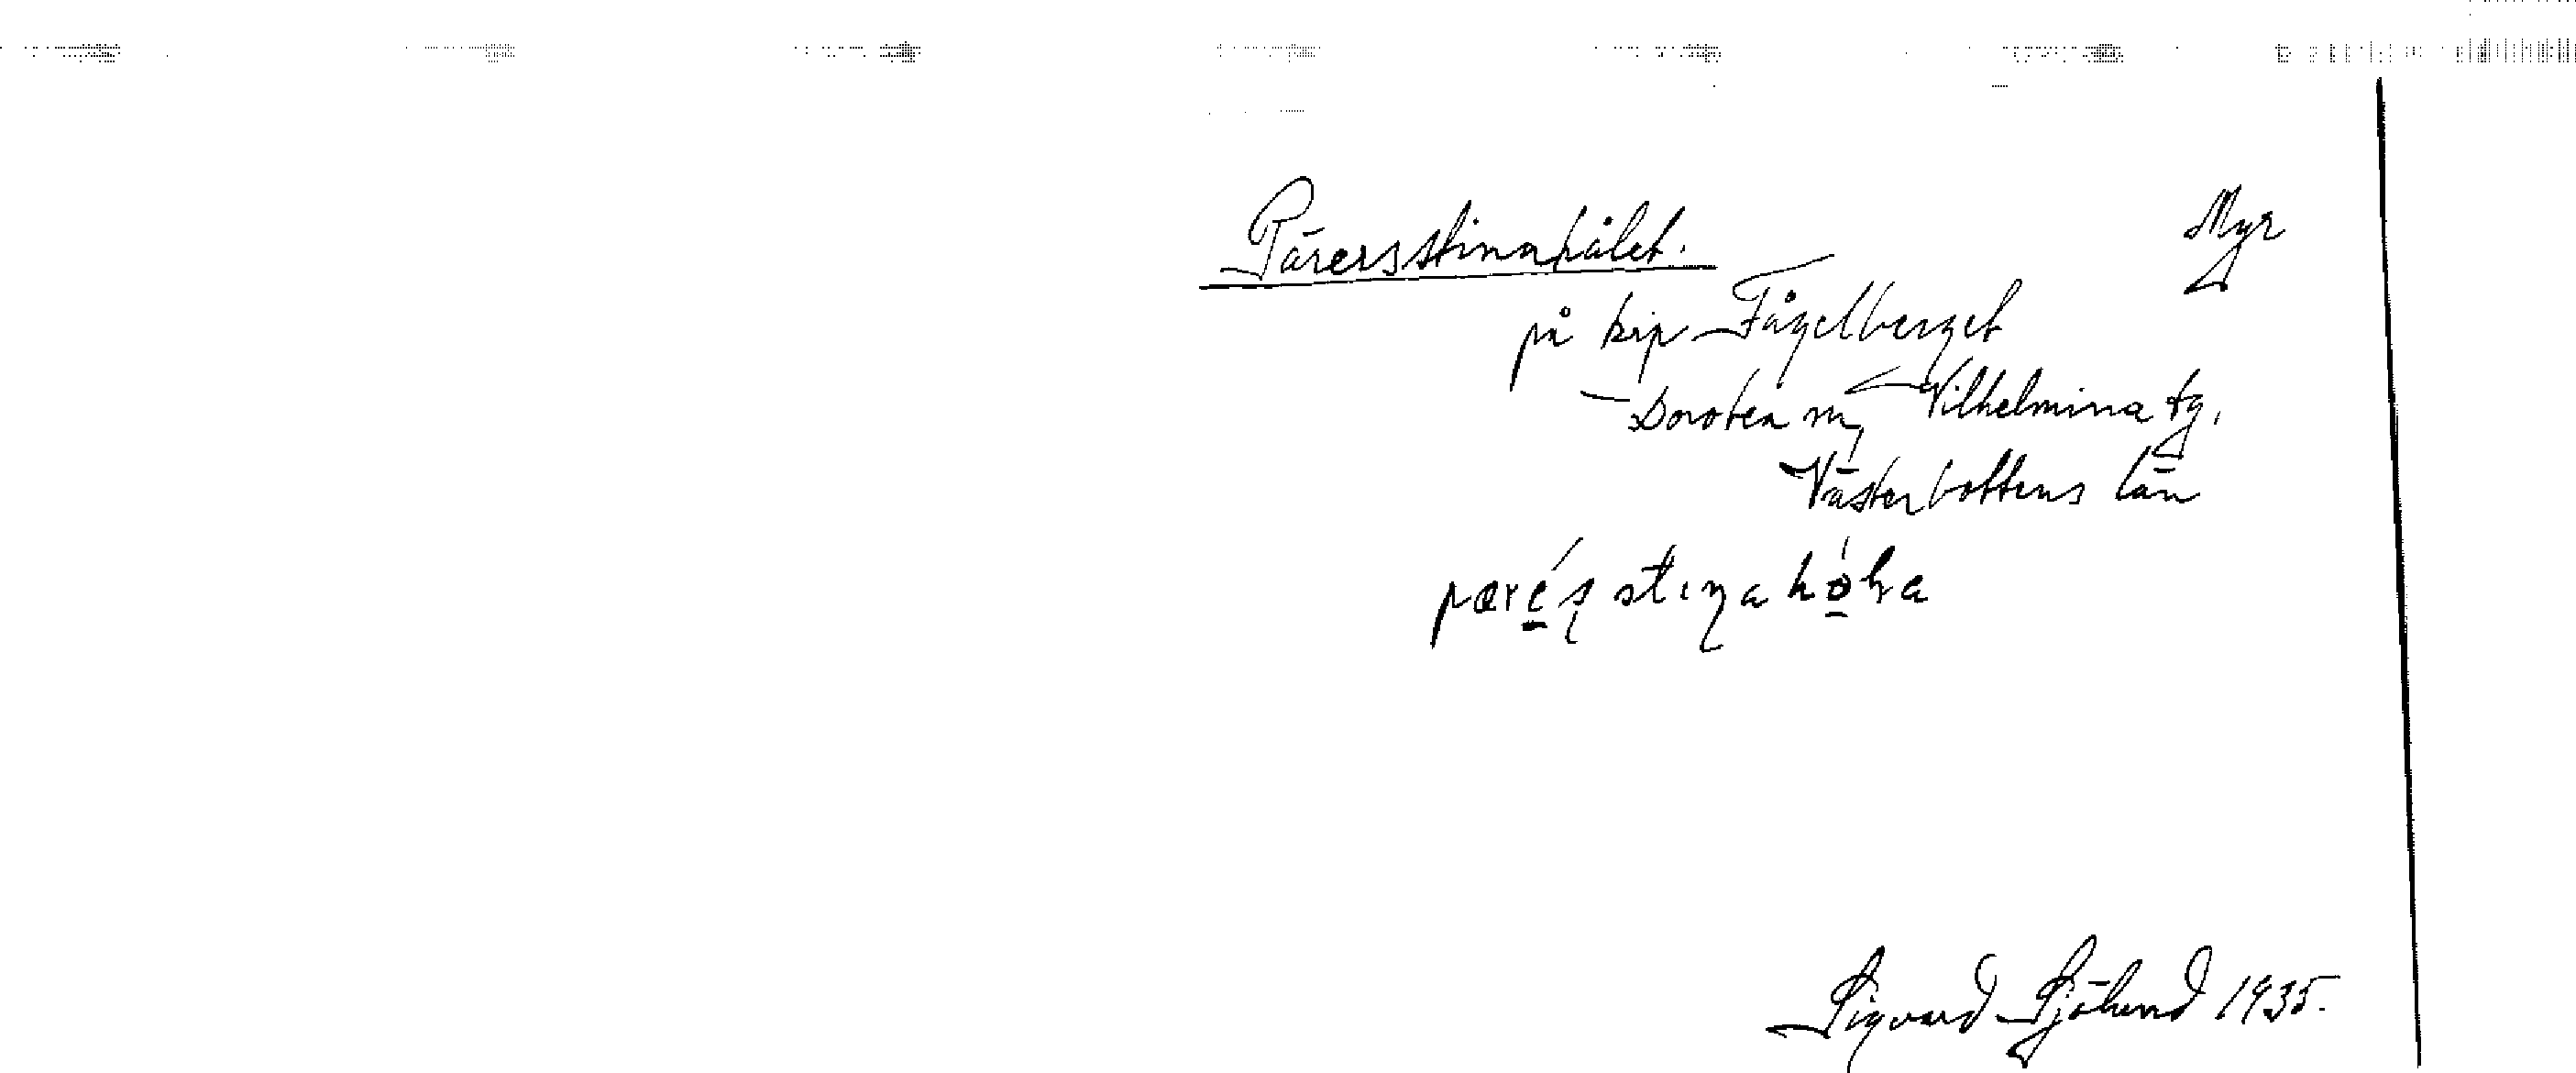 Pärersstinahålet. Myr
på krp Fågelberget
Dorotea sn, Vilhelmina tg.
Västerbottens län
Sigvard Sjölund 1935.